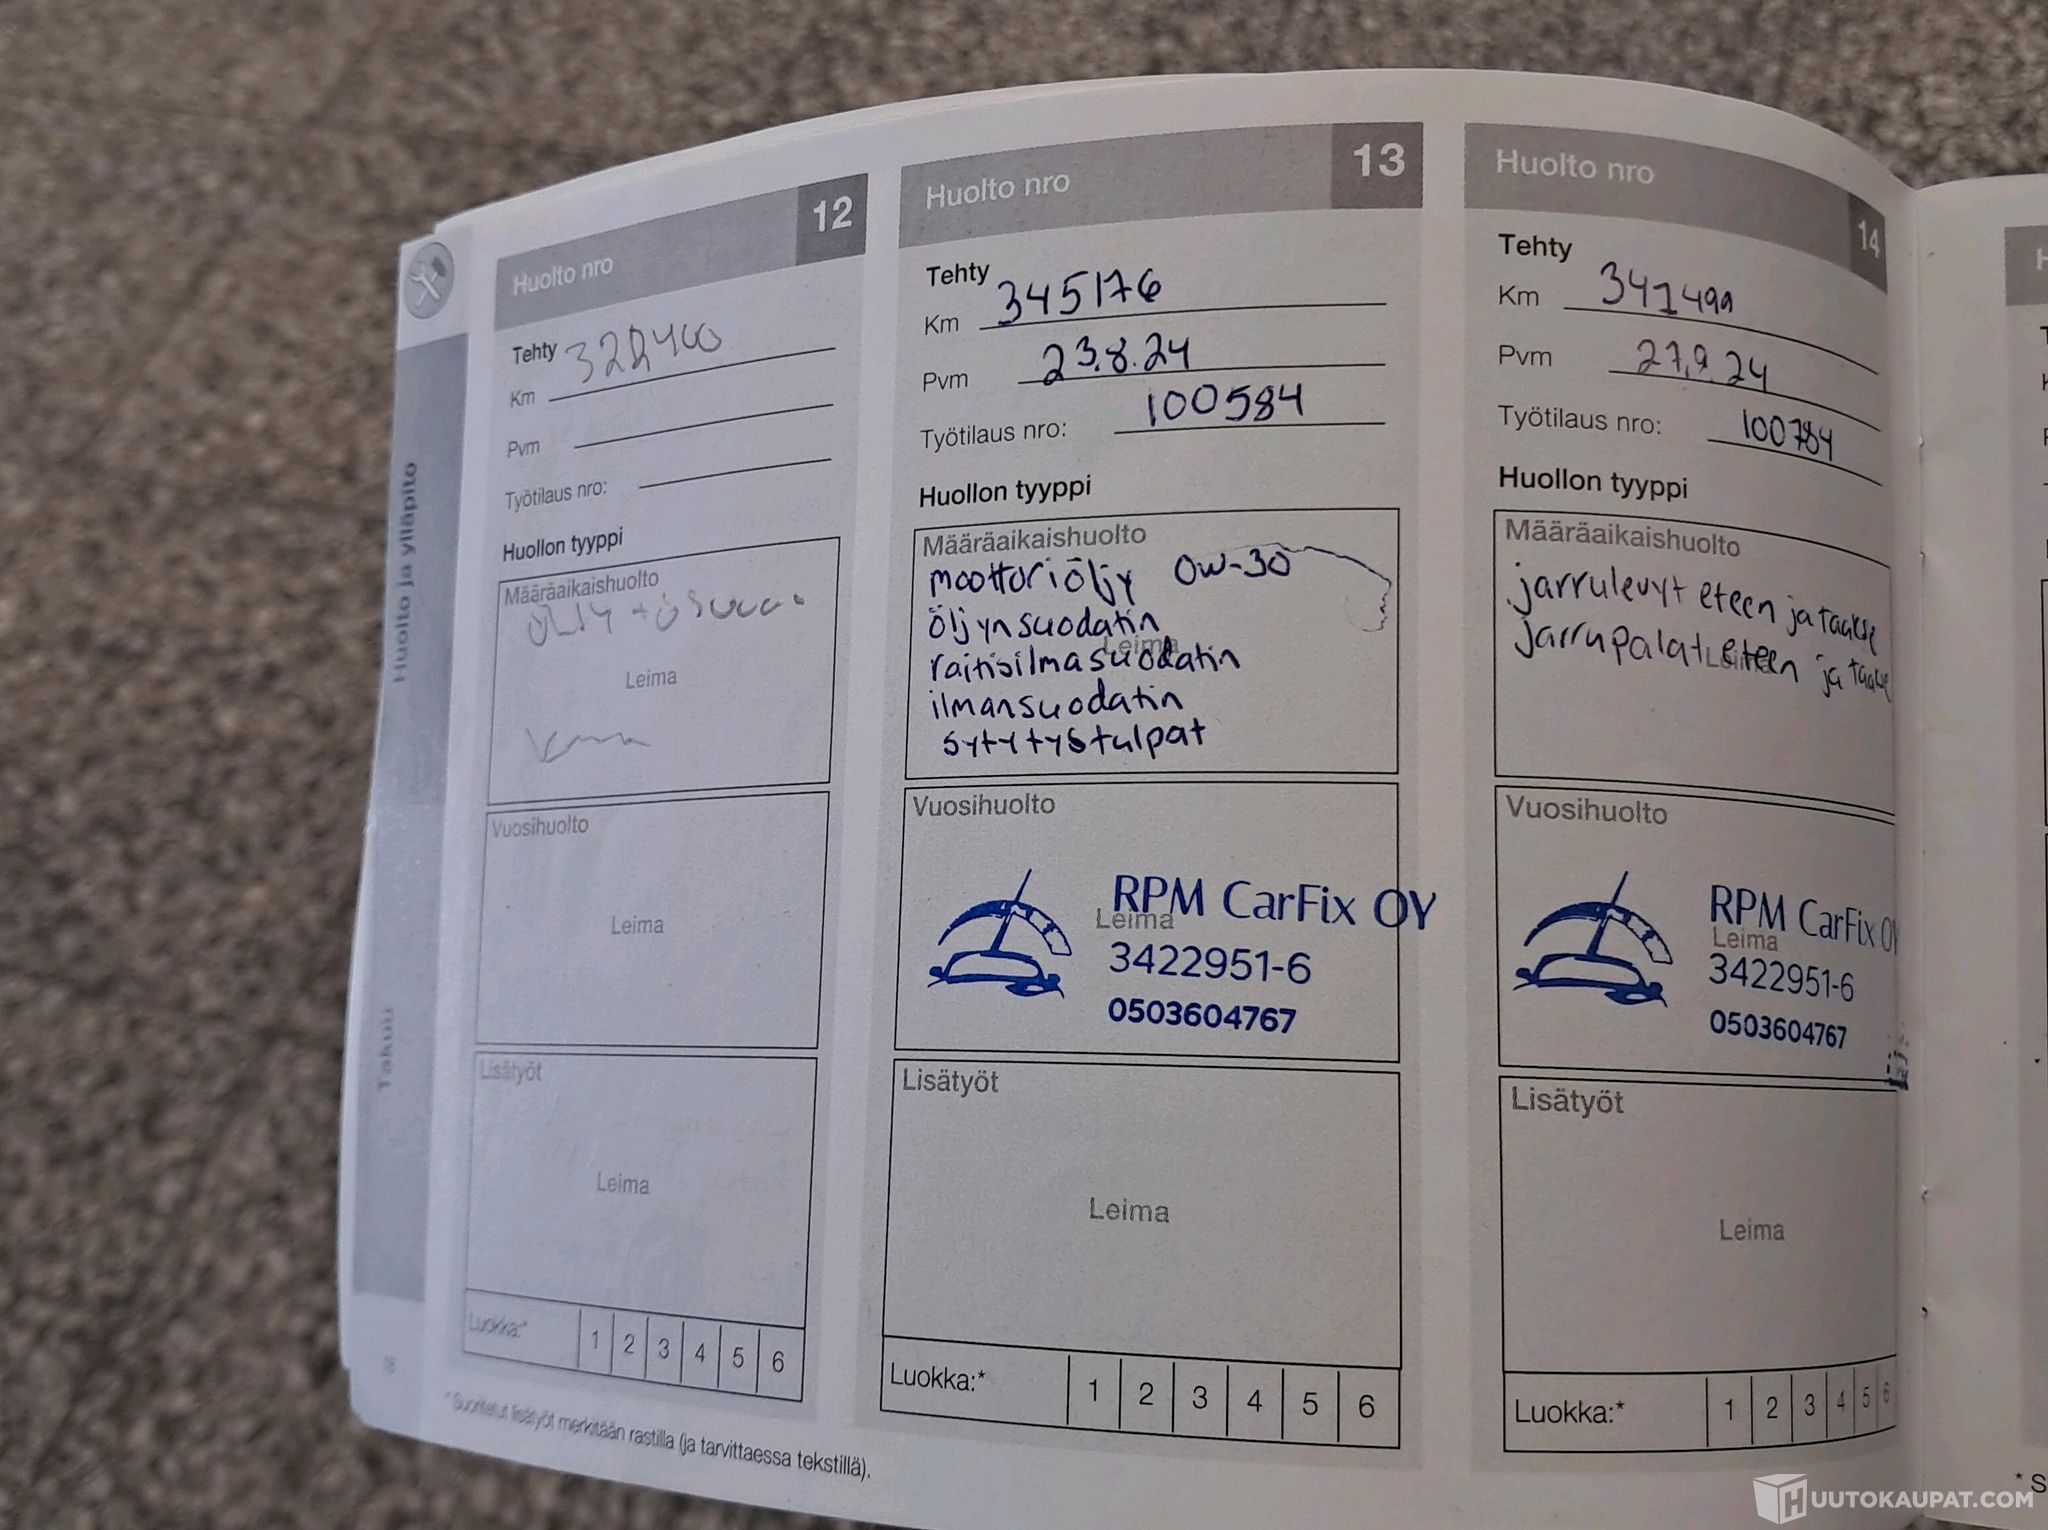 Huolto ja ylläpito
Takuu
18
Huolto nro 12
Tehty
Km 322400
Pvm
Työtilaus nro:
Huollon tyyppi
Määräaikaishuolto
Leima
Vuosihuolto
Leima
Lisätyöt
Leima
Luokka:* 1 2 3 4 5 6
* Suoritetut lisätyöt merkitään rastilla (ja tarvittaessa tekstillä).
Huolto nro 13
Tehty
Km 345176
Pvm 23.8.24
Työtilaus nro: 100584
Huollon tyyppi
Määräaikaishuolto
moottoriöljy 0w-30
öljynsuodatin
Leima
raitisilmasuodatin
ilmansuodatin
sytytystulpat
Vuosihuolto
RPM CarFix OY
Leima
3422951-6
0503604767
Lisätyöt
Leima
Luokka:* 1 2 3 4 5 6
Huolto nro 14
Tehty
Km 347499
Pvm 27.9.24
Työtilaus nro: 100784
Huollon tyyppi
Määräaikaishuolto
jarrulevyt eteen ja taakse
jarrupalat eteen ja taakse
Leima
Vuosihuolto
RPM CarFix OY
Leima
3422951-6
0503604767
Lisätyöt
Leima
Luokka:* 1 2 3 4 5 6
HUUTOKAUPAT.COM